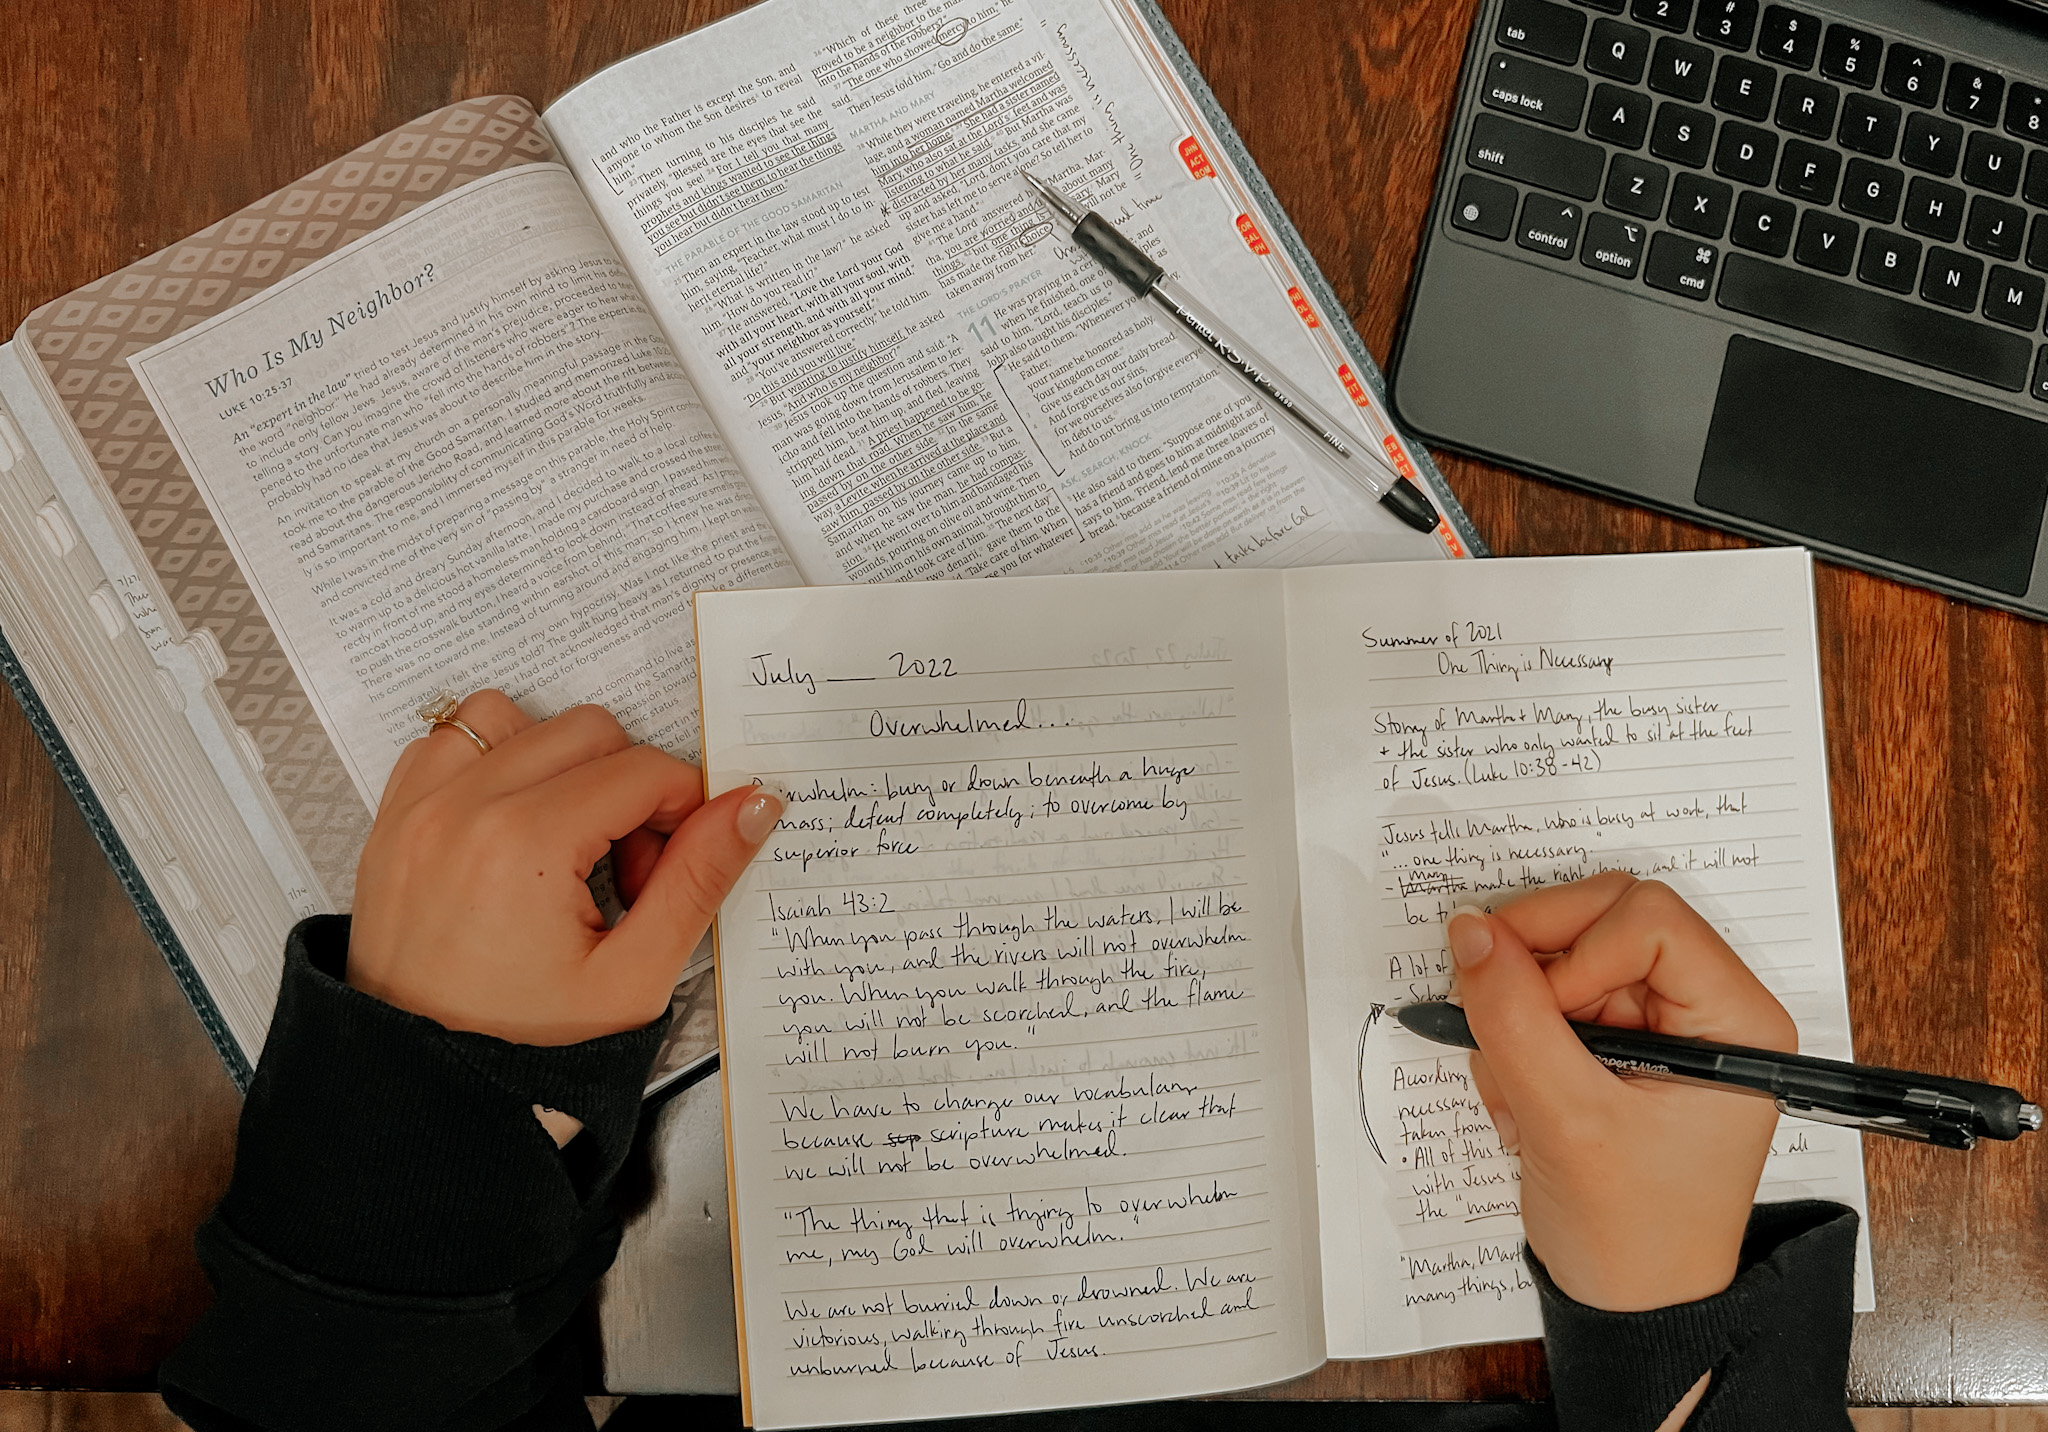 Who Is My Neighbor?
LUKE 10:25-37
An "expert in the law" tried to test Jesus and justify himself by asking Jesus to
the word "neighbor." He had already determined in his own mind to limit his
to include only fellow Jews. Jesus, aware of the man's prejudice, proceeded to
telling a story. Can you imagine the crowd of listeners who were eager to hear what
pened to the unfortunate man who "fell into the hands of robbers"? The expert in
probably had no idea that Jesus was about to describe him in the story.
An invitation to speak at my church on a personally meaningful passage in the
took me to the parable of the Good Samaritan. I studied and memorized Luke 10:25
read about the dangerous Jericho Road, and learned more about the rift between
and Samaritans. The responsibility of communicating God's Word truthfully and
ly is so important to me, and I immersed myself in this parable for weeks.
While I was in the midst of preparing a message on this parable, the Holy Spirit
and convicted me of the very sin of "passing by" a stranger in need of help.
It was a cold and dreary Sunday afternoon, and I decided to walk to a local coffee
to warm up to a delicious hot vanilla latte. I made my purchase and crossed the
rectly in front of me stood a homeless man holding a cardboard sign. I passed
raincoat hood up, and my eyes determined to look down instead of ahead. As I
to push the crosswalk button, I heard a voice from behind, "That coffee sure smells
There was no one else standing within earshot of this man, so I knew he was
his comment toward me. Instead of turning around and engaging him, I kept on
Immediately I felt the sting of my own hypocrisy. Was I not like the priest and the
parable Jesus told? The guilt hung heavy as I returned to put the
I had not acknowledged that man's dignity or presence, and
asked God for forgiveness and vowed to make a different
challenge and command to live as
us said the Samaritan
compassion toward
omic status.
and who the Father is except the Son, and
anyone to whom the Son desires" to reveal
him."
23 Then turning to his disciples he said
privately, "Blessed are the eyes that see the
things you see! 24 For I tell you that many
prophets and kings wanted to see the things
you see but didn't see them; to hear the things
you hear but didn't hear them."
THE PARABLE OF THE GOOD SAMARITAN
25 Then an expert in the law stood up to test
him, saying, "Teacher, what must I do to in-
herit eternal life?"
26 "What is written in the law?" he asked
him. "How do you read it?"
27 He answered, "Love the Lord your God
with all your heart, with all your soul, with
all your strength, and with all your mind;"
and "your neighbor as yourself."
28 "You've answered correctly," he told him.
"Do this and you will live."
29 But wanting to justify himself, he asked
Jesus, "And who is my neighbor?"
30 Jesus took up the question and said: "A
man was going down from Jerusalem to Jer-
icho and fell into the hands of robbers. They
stripped him, beat him up, and fled, leaving
him half dead. 31 A priest happened to be go-
ing down that road. When he saw him, he
passed by on the other side. 32 In the same
way, a Levite, when he arrived at the place and
saw him, passed by on the other side. 33 But a
Samaritan on his journey came up to him,
and when he saw the man, he had compas-
sion. 34 He went over to him and bandaged his
wounds, pouring on olive oil and wine. Then
he put him on his own animal, brought him to
and took care of him. 35 The next day
two denarii, gave them to the
Take care of him. When
you for whatever
36 "Which of these three
proved to be a neighbor to the man
into the hands of the robbers?"
37 "The one who showed mercy to him," he
said.
Then Jesus told him, "Go and do the same."
MARTHA AND MARY
38 While they were traveling, he entered a vil-
lage, and a woman named Martha welcomed
him into her home. 39 She had a sister named
Mary, who also sat at the Lord's feet and was
listening to what he said. 40 But Martha was
distracted by her many tasks, and she came
up and asked, "Lord, don't you care that my
sister has left me to serve alone? So tell her to
give me a hand."
41 The Lord answered
"Martha, Mar-
tha, you are worried and
about many
things, 42 but one thing is
Mary
has made the right choice,
will not be
taken away from her."
"One thing is necessary"
THE LORD'S PRAYER
11 He was praying in a
and
when he finished, one of
disciples
said to him, "Lord, teach us to
as
John also taught his disciples."
2 He said to them, "Whenever you
Father,
your name be honored as holy.
Your kingdom come.
3 Give us each day our daily bread.
4 And forgive us our sins,
for we ourselves also forgive everyone
in debt to us.
And do not bring us into temptation."
ASK, SEARCH, KNOCK
5 He also said to them: "Suppose one of you
has a friend and goes to him at midnight and
says to him, 'Friend, lend me three loaves of
bread, 6 because a friend of mine on a journey
tasks before God
JHN
ACT
ROM
Pentel R.S.V.P.
FINE
tab
caps lock
shift
control
option
cmd
2
# 3
$ 4
% 5
^ 6
& 7
* 8
Q W E R T Y U
A S D F G H J
Z X C V B N M
July ___ 2022
Overwhelmed...
Overwhelm: bury or drown beneath a huge
mass; defeat completely; to overcome by
superior force
Isaiah 43:2
"When you pass through the waters, I will be
with you, and the rivers will not overwhelm
you. When you walk through the fire,
you will not be scorched, and the flame
will not burn you."
We have to change our vocabulary
because scrip scripture makes it clear that
we will not be overwhelmed.
"The thing that is trying to overwhelm
me, my God will overwhelm."
We are not burried down or drowned. We are
victorious, walking through fire unscorched and
unburned because of Jesus.
Summer of 2021
One Thing is Necessary
Story of Martha + Mary, the busy sister
+ the sister who only wanted to sit at the feet
of Jesus. (Luke 10:38-42)
Jesus tells Martha, who is busy at work, that
"...one thing is necessary."
- Martha Mary made the right choice, and it will not
be
A lot of
According
necessary
taken from
• All of this
with Jesus is
all
the "many
"Martha, Mart
many things, bu
Paper Mate